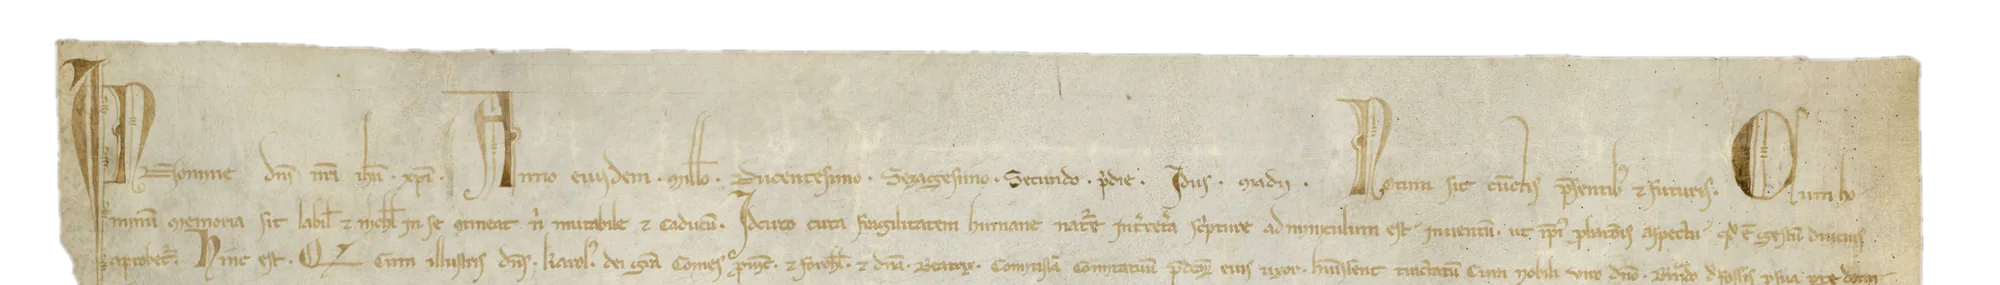 IN Nomine dnī nr̄i ihū · xp̄i · Anno eiusdem · mill̄o · Ducentesimo · Sexagesimo · Secundo · p̄die · Idus · madij · Notum sit cūctis p̄sentib; ⁊ futuris · Qum ho
minū memoria sit labil̄ ⁊ nichil̄ in se 9tineat n̄ mutabile ⁊ caducū · Idcirco circa fragilitatem humane nat̄re scp̄ture adminiculum est inuentū · ut ip̄i aspectu qd̄ ē gestū diucius
aprobet᷑ · Hinc est · Q Cum illustris dn̄s · karol̄ · dei gr̄a Comes ꝓuīc̄ · ⁊ forch̄ · ⁊ dn̄a · Beatrix · Comitissa Comitatuū p̄dc̄oꝝ eius uxor · habuissent tractatū Cum nobili uiro dn̄o